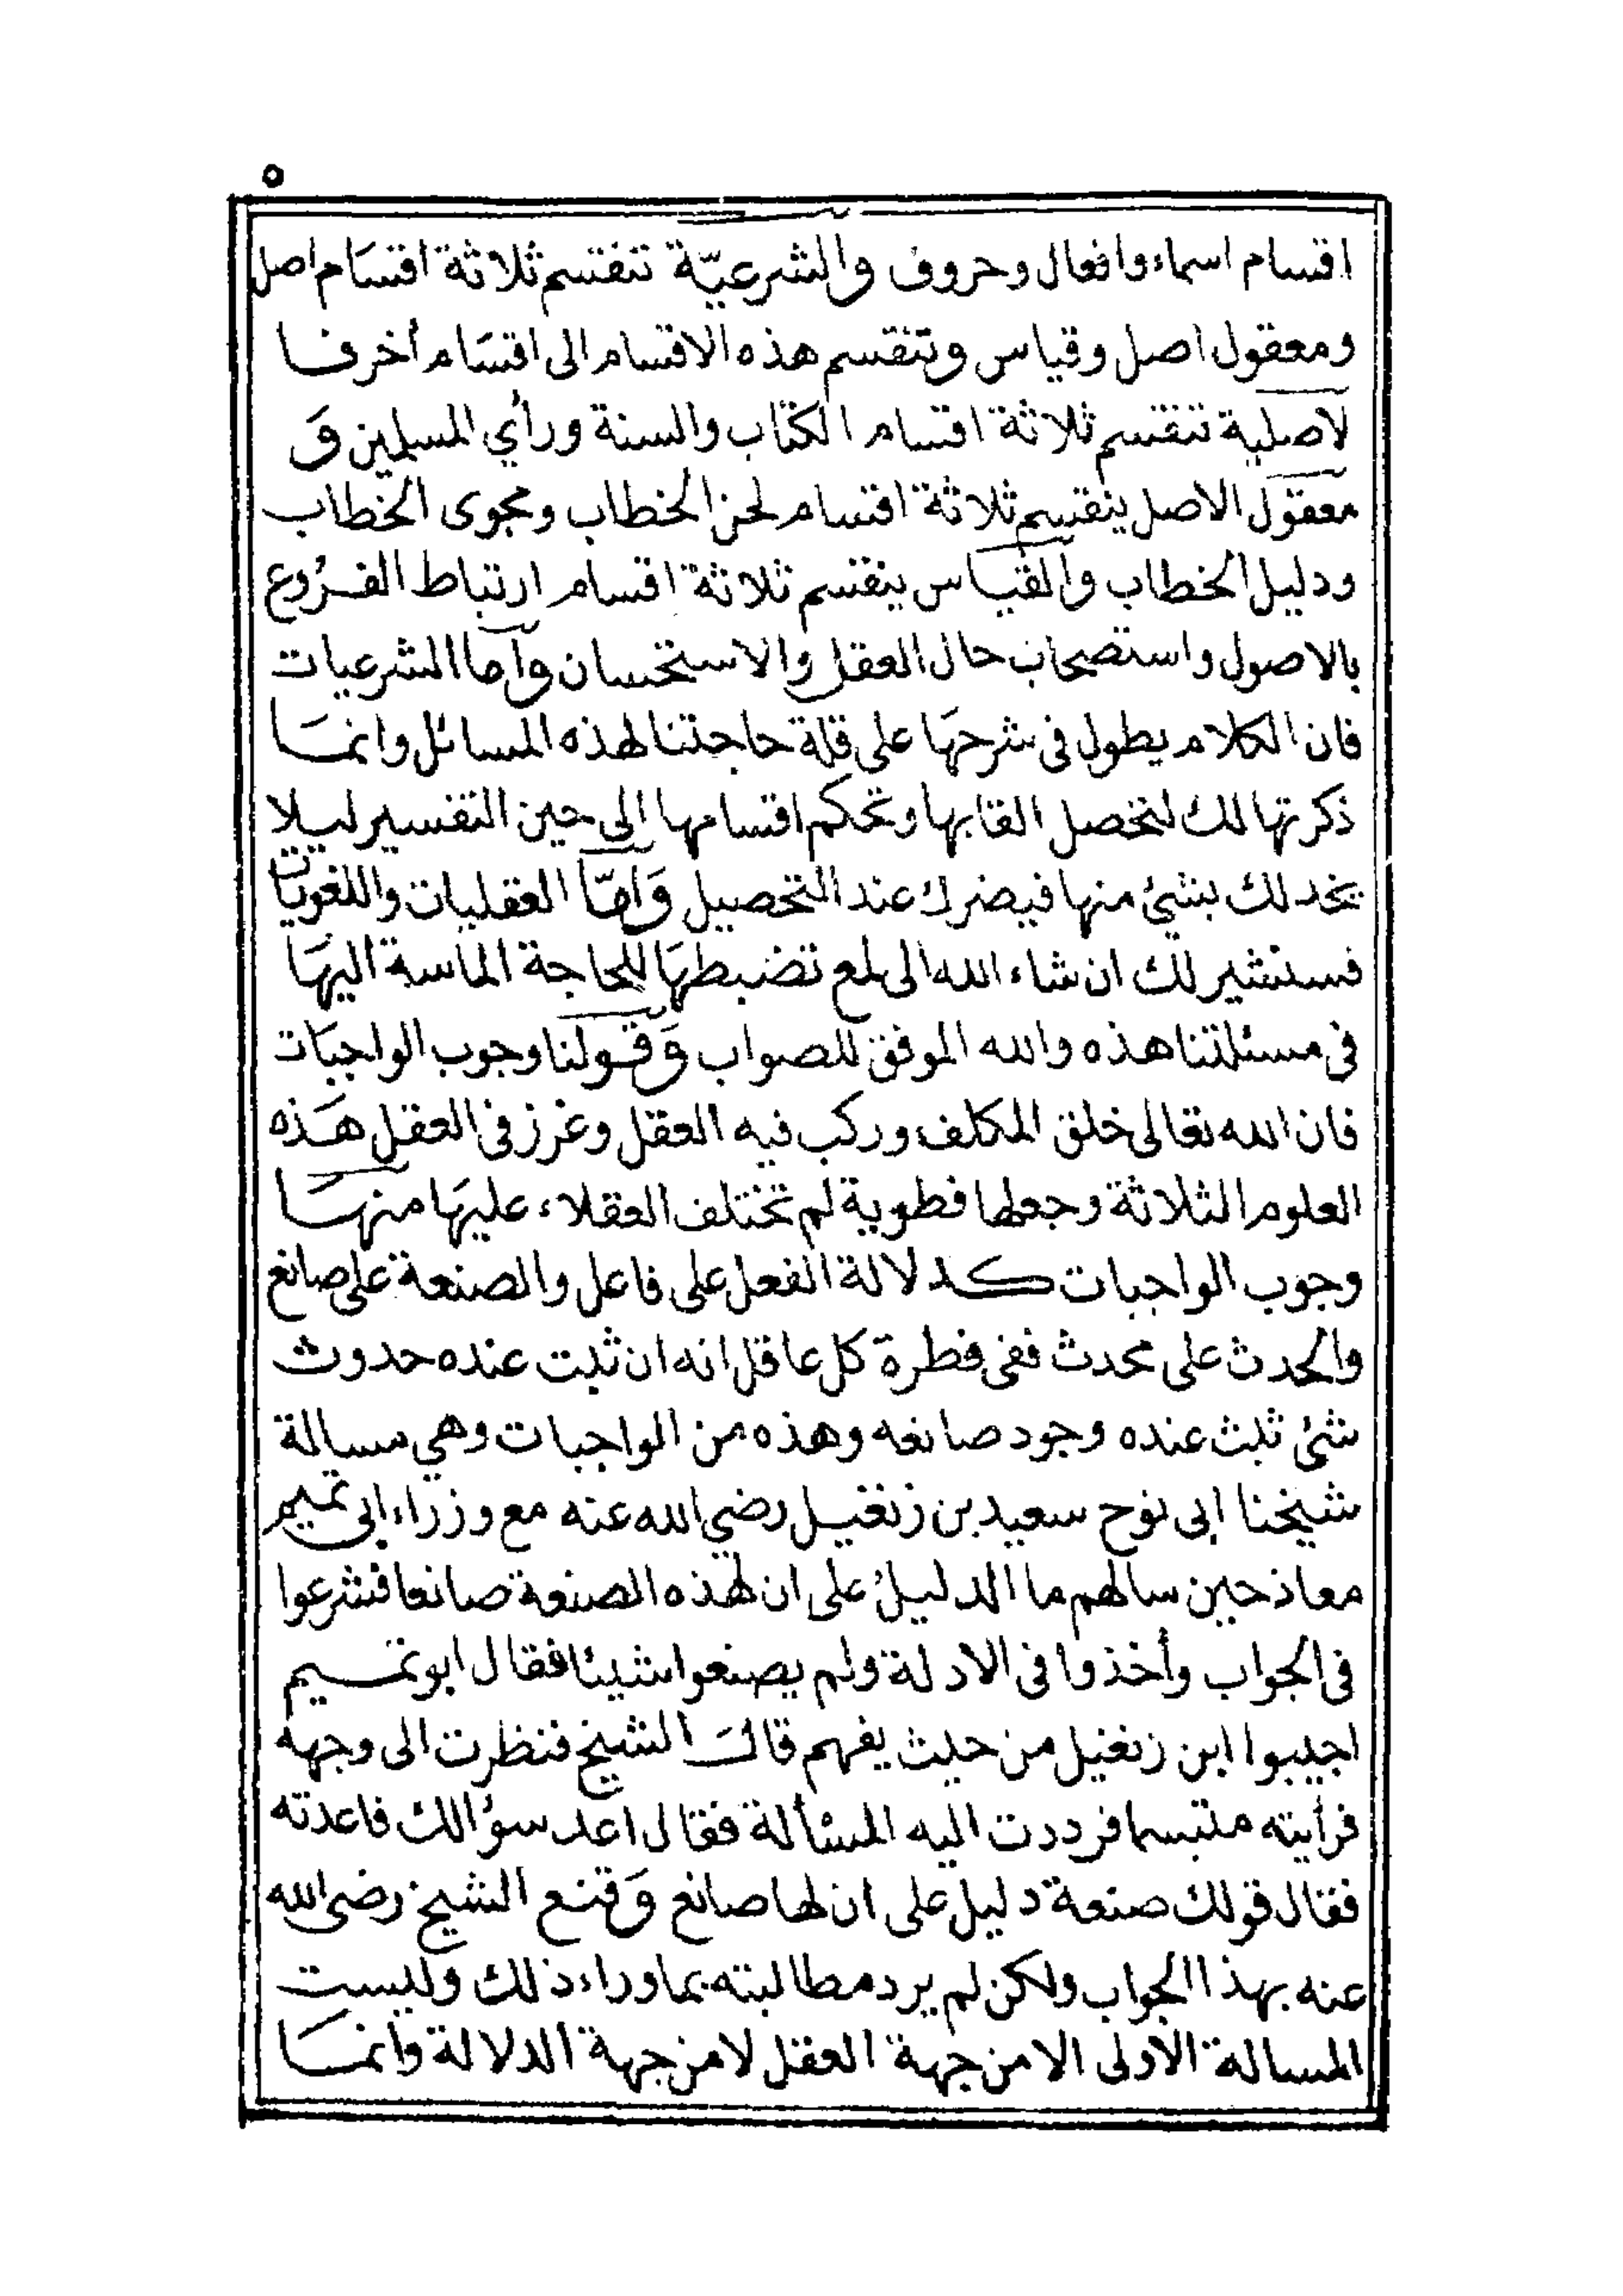 ٥
اقسام اسماء وافعال وحروف والشرعيّة تنقسم ثلاثة اقسَام اصل
ومعقول اصل وقياس وتنقسم هذه الاقسام الى اقسَام أخر فا
لاصلية تنقسم ثلاثة اقسام الكتاب والسنة ورأي المسلمين وَ
معقول الاصل ينقسم ثلاثة اقسام لحن الخطاب وفحوى الخطاب
ودليل الخطاب والقياس ينقسم ثلاثة اقسام ارتباط الفرُوع
بالاصول واستصحاب حال العقل والاستحسان وأما الشرعيات
فان الكلام يطول فى شرحهَا على قلة حاجتنا لهذه المسائل وانمَا
ذكرتها لك لتحصل القابها وتحكم اقسامها إلى حين التفسير ليلا
يخد لك بشئ منها فيضرك عند التحصيل وَأمّا العقليات واللغويات
فسنشير لك ان شاء الله الى لمع تضبطهَا للحاجة الماسة اليهَا
فى مسئلتنا هذه والله الموفق للصواب وَقولنا وجوب الواجبَات
فان الله تعالى خلق المكلف وركب فيه العقل وغرز فى العقل هَذه
العلوم الثلاثة وجعلها فطوية لم تختلف العقلاء عليهَا منهَا
وجوب الواجبات كدلالة الفعل على فاعل والصنعة على صانع
والحدث على محدث ففى فطرة كل عاقل انه ان ثبت عنده حدوث
شئ ثبت عنده وجود صانعه وهذه من الواجبات وهي مسالة
شيخنا ابى نوح سعيد بن زنغيل رضي الله عنه مع وزراء ابى تميم
معاذ حين سالهم ما الدليلُ على ان لهذه الصنعة صانعا فشرعوا
فى الجواب وأخذوا فى الادلة ولم يصنعوا شيئا فقال ابو تميم
اجيبوا ابن زنغيل من حيث يفهم قالَ الشيخ فنظرت الى وجهه
فرأيته متبسما فرددت اليه المسألة فقال اعد سؤالك فاعدته
فقال قولك صنعة دليل على ان لها صانع وَقنع الشيخ رضى الله
عنه بهذا الجواب ولكن لم يرد مطالبته بما وراء ذلك وليست
المسالة الاولى الا من جهة العقل لا من جهة الدلالة وانمَا